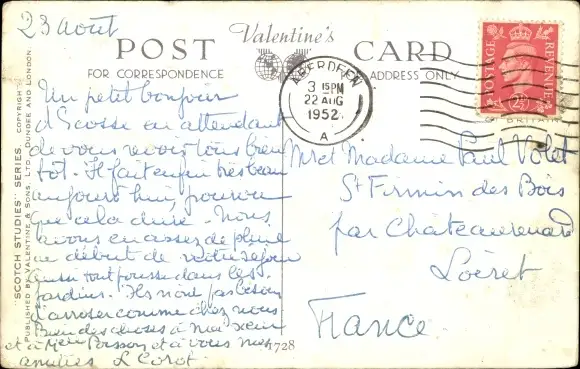 23 Août
Valentine's
POST CARD
FOR CORRESPONDENCE
ADDRESS ONLY
"SCOTCH STUDIES" SERIES. COPYRIGHT.
PUBLISHED BY VALENTINE & SONS, LTD., DUNDEE AND LONDON.
ABERDEEN
3 15PM
22 AUG
1952
A
POSTAGE
REVENUE
2½
BRITAIN
Un petit bonjour
d'Ecosse en attendant
de vous revoir tous bien
tôt. Il fait enfin très beau
aujourd'hui, pourvu
que cela dure. Nous
avons eu assez de pluie
au début de notre séjour
aussi tout pousse dans les
jardins. Ils n'ont pas besoin
d'arroser comme chez nous
Bien des choses à
et à Poisson et à vous
amitiés L Corot
M et Madame Paul Volet
St Firmin des Bois
par Châteaurenard
Loiret
France
1728